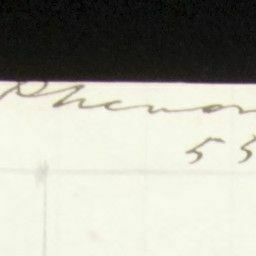 Phenom
55